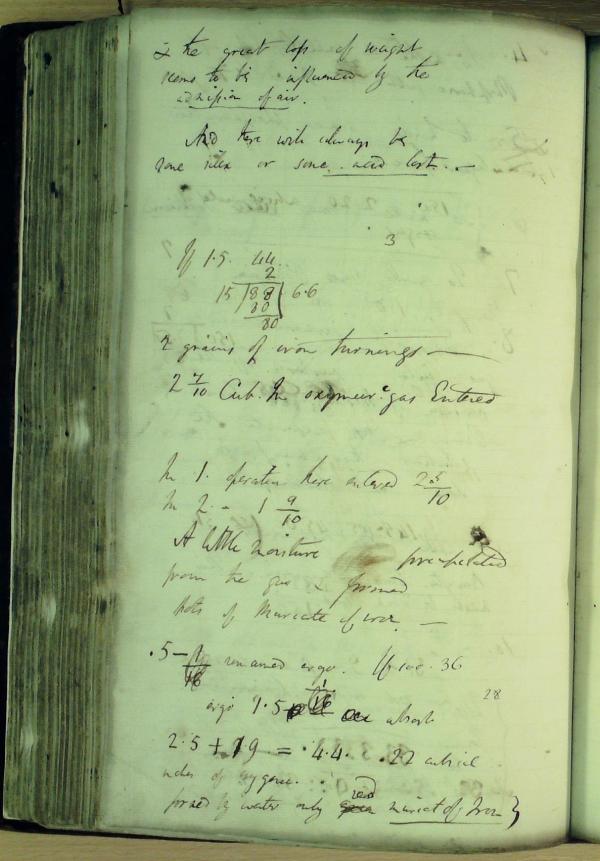 & the great loss of weight
seems to be influenced by the
admission of air.
And there will always be
some silex or some acid lost. —
3
If 1.5. 44.
2
15 88 6.6
80
80
2 grains of iron turnings —
2 7/10 Cub. In oxymur.c gas Entered
In 1. operation there entered 2 5/10
In 2. – 1 9/10
A little moisture precipitated
from the gas & formed
dots of Muriate of iron. —
.5 – 1/16 remained ergo. If 100. 36
ergo 16 absorb 28
2.5 + 19 = .4.4. .22 cubical
inches of oxygene.
formed by water only red muriat of Iron }